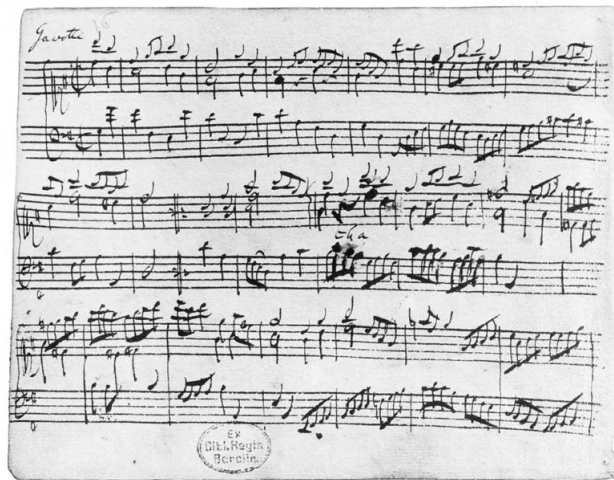 Gavotte
Ex
Bibl. Regia
Berolin.